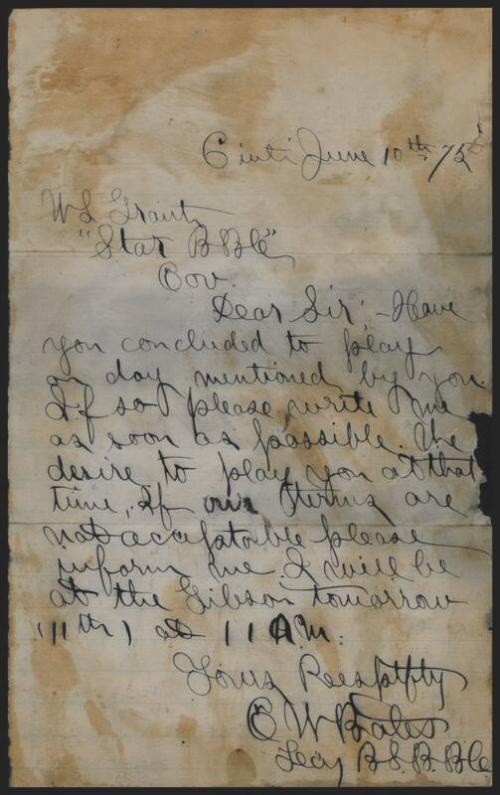 Cinti June 10th /75
W L Grant
"Star B B C"
Cov.
Dear Sir, - Have
you concluded to play
on day mentioned by you.
If so please write me
as soon as possible. We
desire to play you at that
time, If our terms are
not acceptable please
inform me. I will be
at the Gibson tomorrow
(11th) at 11 A.M.
Yours Respttfly
C W Bates
Secy B.S.B.B.C.